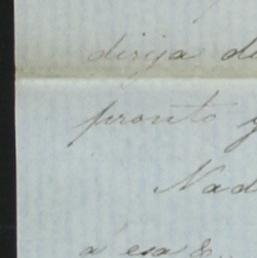 dirija de
pronto y
Nad
á esa &